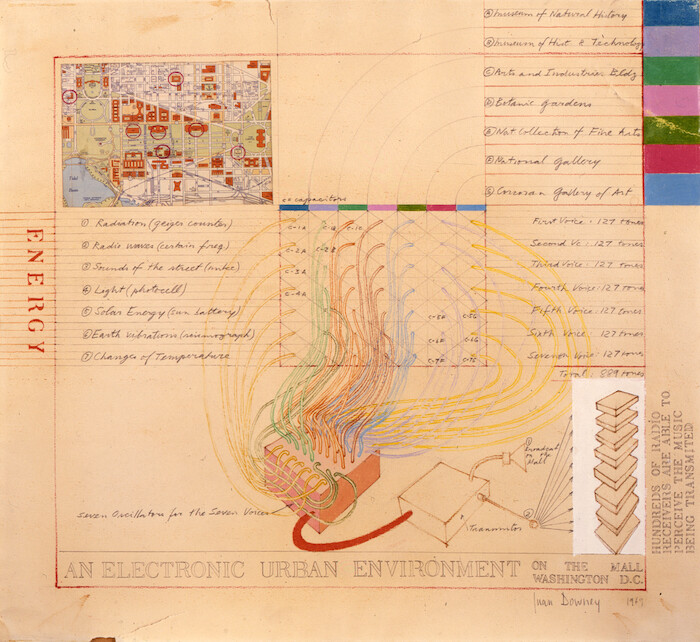 Ⓐ Museum of Natural History
Ⓑ Museum of Hist & Technology
Ⓒ Arts and Industries Bldg
Ⓓ Botanic Gardens
Ⓔ Nat Collection of Fine Arts
Ⓕ National Gallery
Ⓖ Corcoran Gallery of Art
capacitors
ENERGY
① Radiation (geiger counter)
② Radio waves (certain freq.)
③ Sounds of the street (mike)
④ Light (photocell)
⑤ Solar Energy (sun battery)
⑥ Earth vibrations (seismograph)
⑦ Changes of Temperature
C-1A C-1B C-1C
C-2A C-2B
C-3A
C-4A
First Voice: 127 tones
Second Vc: 127 tones
Third Voice: 127 tones
Fourth Voice: 127 tones
Fifth Voice: 127 tones
Sixth Voice: 127 tones
Seventh Voice: 127 tones
Total: 889 tones
Tidal
Basin
Seven Oscillators for the Seven Voices
Transmitor
① broadcast
on the
Mall
②
HUNDREDS OF RADIO
RECEIVERS ARE ABLE TO
PERCEIVE THE MUSIC
BEING TRANSMITED
AN ELECTRONIC URBAN ENVIRONMENT ON THE MALL
WASHINGTON D.C.
Juan Downey